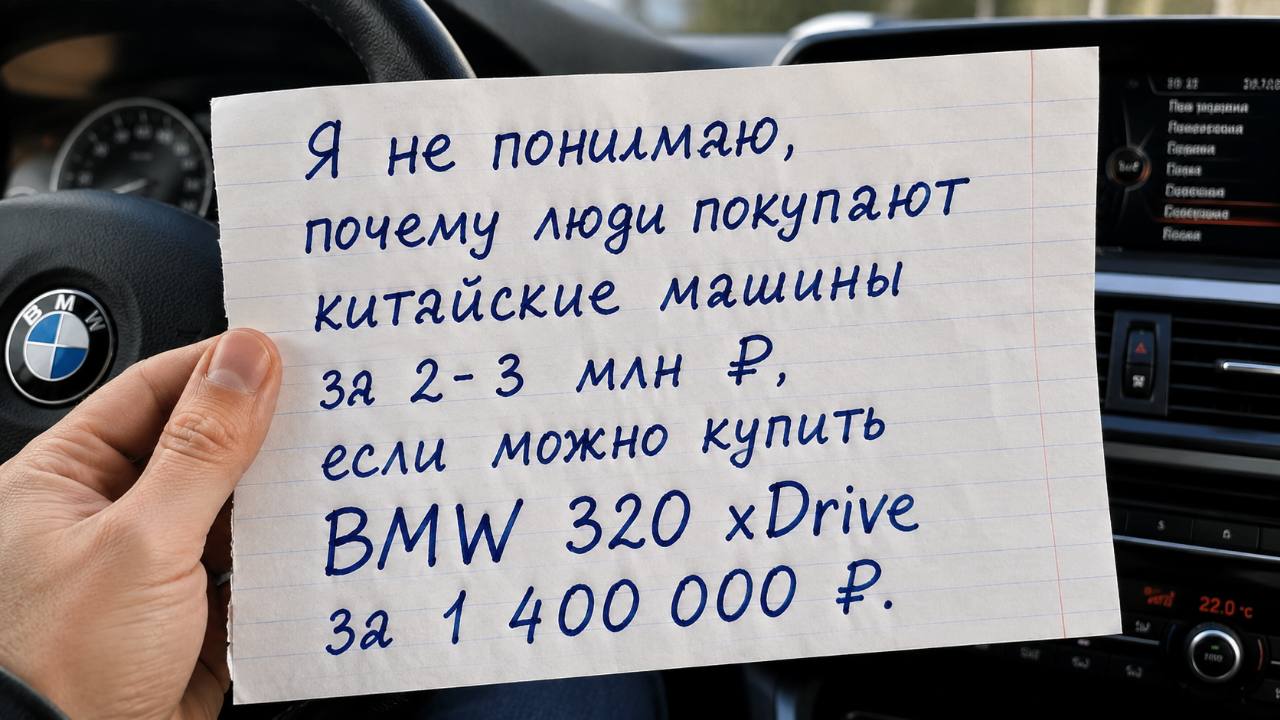 Я не понимаю,
почему люди покупают
китайские машины
за 2-3 млн ₽,
если можно купить
BMW 320 xDrive
за 1 400 000 ₽.
BMW
22.0 °C